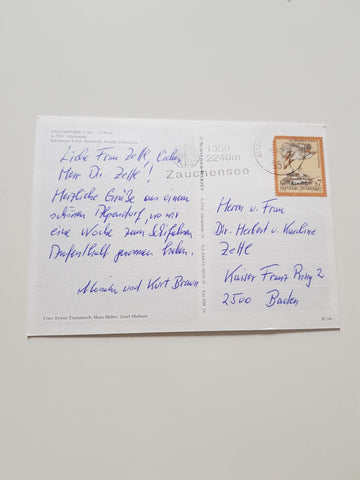 ZAUCHENSEE 1.361 – 2.240 m
A-5541 Altenmarkt
Salzburger Land, Sportwelt Amadé, Österreich
Liebe Frau Zette, lieber
Herr Dr. Zette!
Herzliche Grüße aus einem
schönen Alpendorf, wo wir
eine Woche zum Skifahren
Aufenthalt genommen haben.
Monika und Kurt Braun
1350-
2240m
Zauchensee
Herrn u. Frau
Dr. Herbert u. Karoline
Zette
Kaiser Franz Ring 2
2500 Baden
Foto: Erwin Trampitsch, Hans Huber, Josef Mallaun